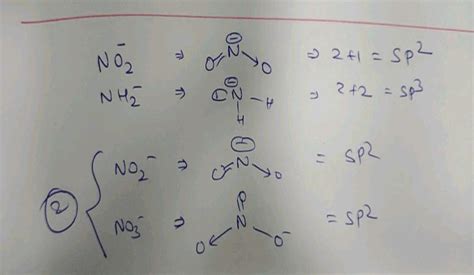 NO₂⁻ ⇒ ⊖ O=N→O ⇒ 2+1 = sp²
NH₂⁻ ⇒ ⊖ N-H H ⇒ 2+2 = sp³
② { NO₂⁻ ⇒ ⊖ O=N→O = sp²
NO₃⁻ ⇒ O N O O⁻ = sp²